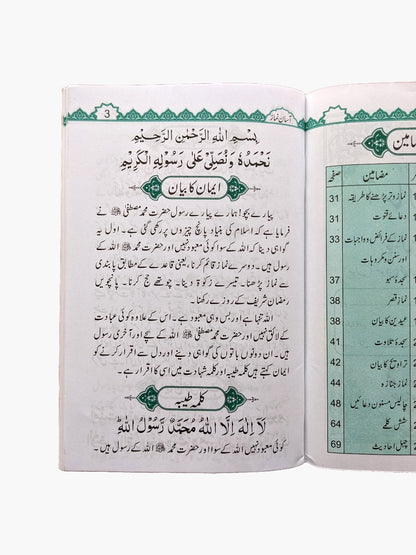 آسان نماز
3
بِسْمِ اللهِ الرَّحْمٰنِ الرَّحِيْمِ
نَحْمَدُهٗ وَنُصَلِّيْ عَلٰى رَسُوْلِهِ الْكَرِيْمِ
ایمان کا بیان
پیارے بچو! ہمارے پیارے رسول حضرت محمد مصطفٰی ﷺ نے
فرمایا ہے کہ اسلام کی بنیاد پانچ چیزوں پر رکھی گئی ہے۔ اول یہ
گواہی دینا کہ اللہ کے سوا کوئی معبود نہیں اور حضرت محمد مصطفٰی ﷺ اللہ کے
رسول ہیں۔ دوسرے نماز قائم کرنا، یعنی قاعدے کے مطابق پابندی
سے نماز پڑھنا۔ تیسرے زکوٰۃ دینا۔ چوتھے حج کرنا۔ پانچویں
رمضان شریف کے روزے رکھنا۔
اللہ تنہا ہے اور بس وہی معبود ہے۔ اس کے علاوہ کوئی عبادت
کے لائق نہیں اور حضرت محمد مصطفٰی ﷺ اللہ کے سچے اور آخری رسول
ہیں۔ ان دونوں باتوں کی گواہی دینے اور دل سے اقرار کرنے کو
ایمان کہتے ہیں کلمہ طیبہ اور کلمہ شہادت میں اسی کا اقرار ہے۔
کلمہ طیبہ
لَآ اِلٰهَ اِلَّا اللهُ مُحَمَّدٌ رَّسُوْلُ اللهِ
کوئی معبود نہیں اللہ کے سوا اور حضرت محمد ﷺ اللہ کے رسول ہیں۔
مضامین
صفحہ
نماز وتر پڑھنے کا طریقہ 31
دعائے قنوت 31
نماز کے فرائض و واجبات 33
اور سنن و مکروہات
سجدۂ سہو 37
نماز قصر 38
عیدین کا بیان 38
سجدۂ تلاوت 41
تراویح کا بیان 42
نماز جنازہ 44
چالیس مسنون دعائیں 48
شش کلمے 64
چہل احادیث 69